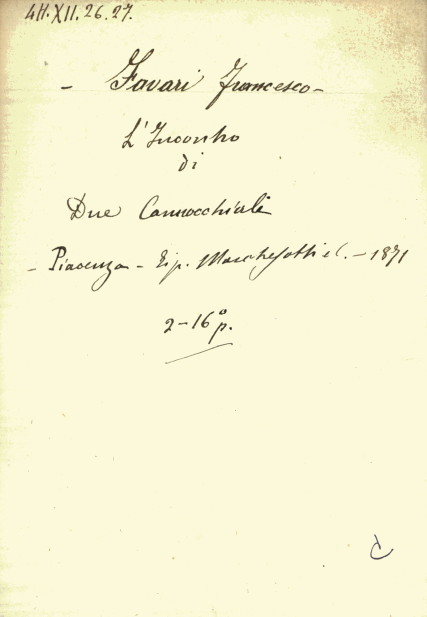 4H.XII.26.27.
- Favari Francesco -
L'Incontro
di
Due Cannocchiali
- Piacenza - Tip. Marchesotti e C. - 1871
2-16º p.
C